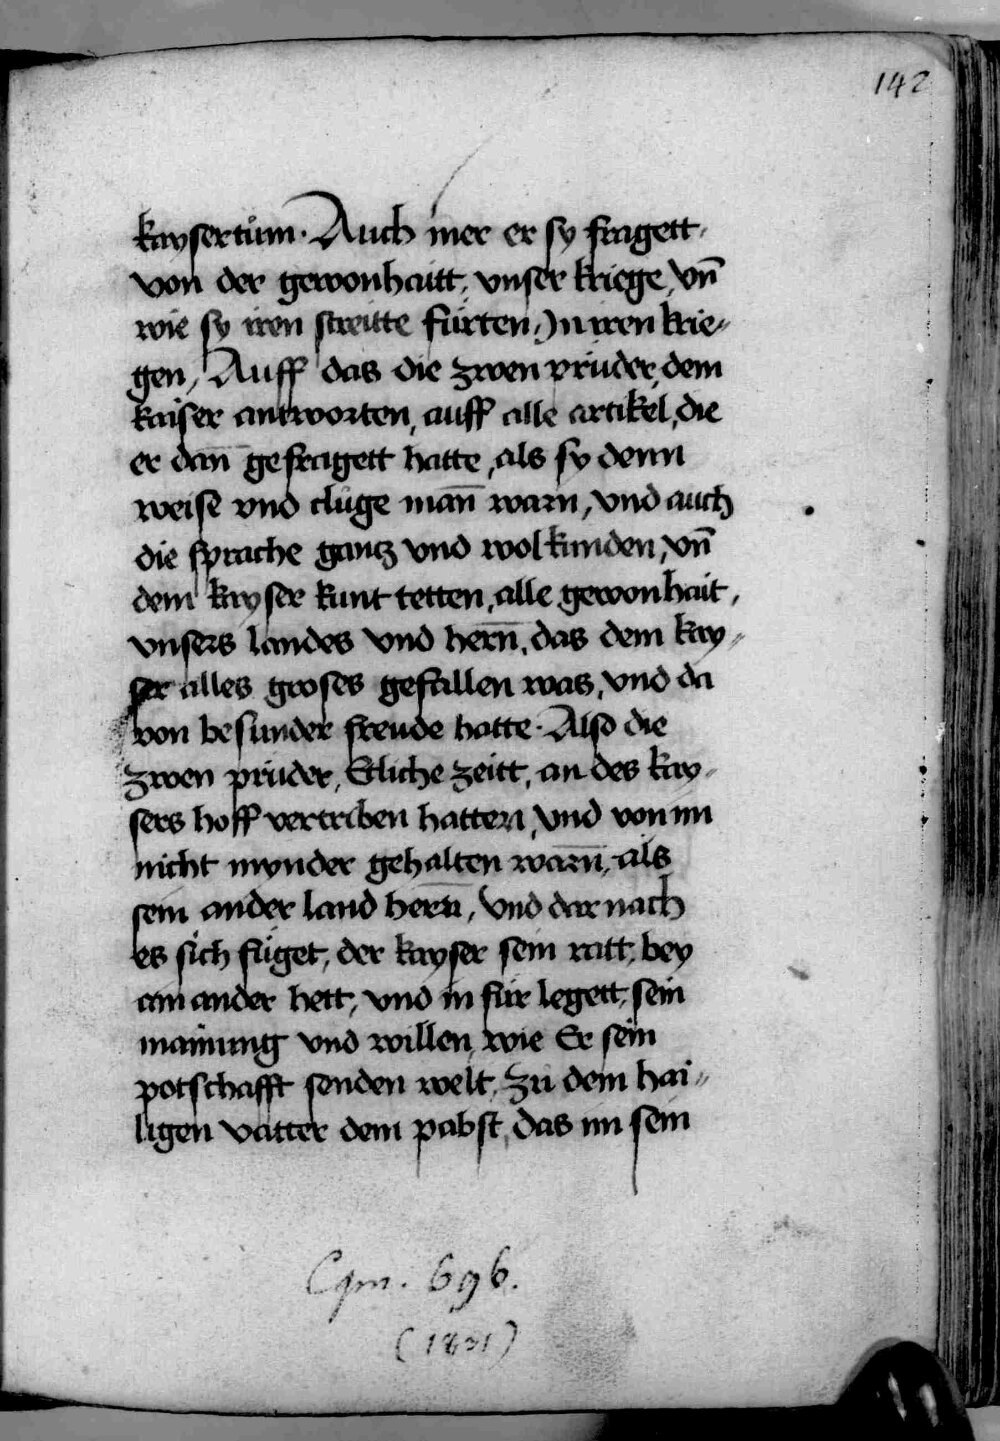 142
kaysertům. Auch mer er sy fragett,
von der gewonhaitt, vnser kriege, vn̄
wie sy iren streitte fürten, In iren krie„
gen, Auff das die zwen prüder, dem
kaiser antworten, auff alle artikel, die
er dan̄ gefragett hatte, als sy denn
weise vnd clůge man̄ warn, vnd auch
die sprache gantz vnd wol kunden, vn̄
dem kayser kunt tetten, alle gewonhait,
vnsers landes vnd hern̄, das dem kay„
ser alles groses gefallen was, vnd da
von besunder freude hatte. Also die
zwen prüder, Etliche zeitt, an des kay„
sers hoff vertriben hatten, vnd von im
nicht mynder gehalten warn̄, als
sein ander land hern̄, Vnd dar nach
es sich füget, der kayser sein ratt, bey
ain ander hett, vnd in für legett, sein
mainung vnd willen, wie Er sein
potschafft senden welt, zu dem hai„
ligen vatter dem pabst, das im sein
Cgm. 696.
(1831)